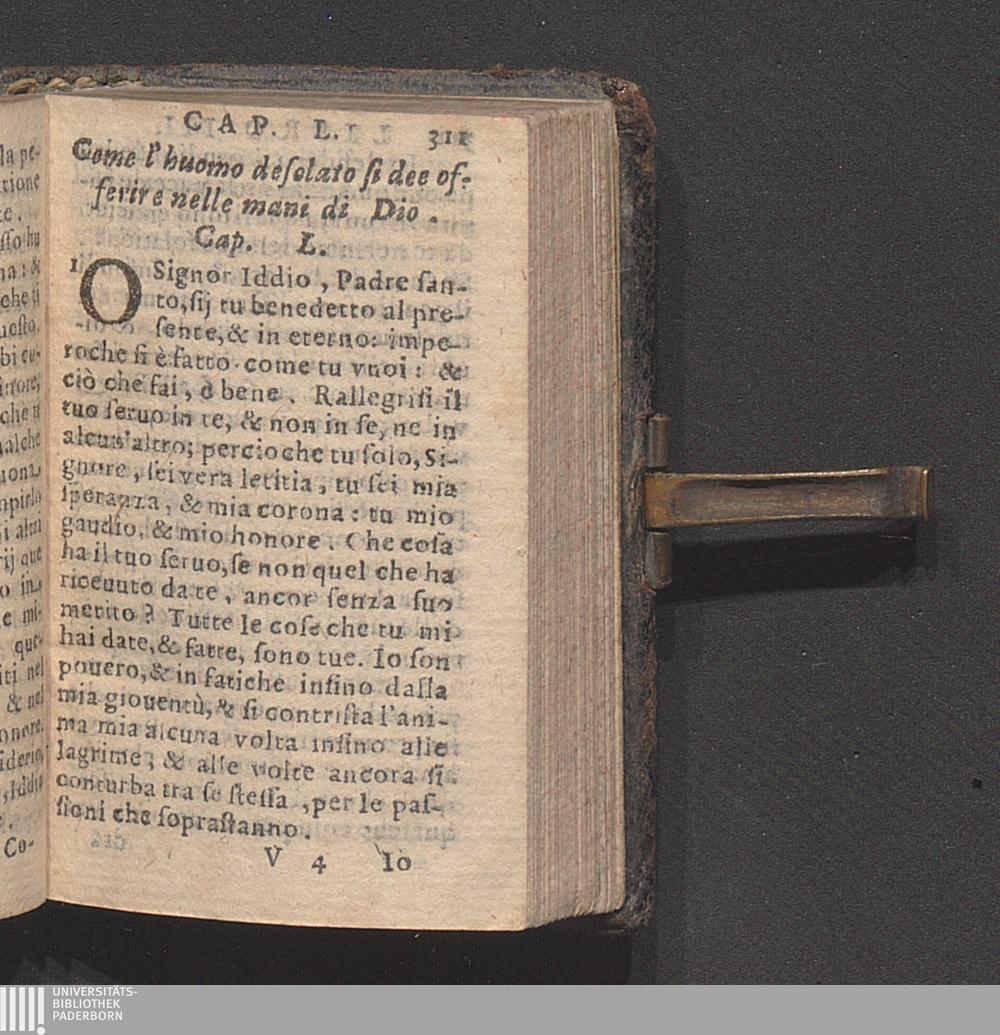 CAP. L. 311
Come l'huomo deſolato ſi dee of-
ferire nelle mani di Dio.
Cap. L.
1 O Signor Iddio, Padre ſan-
to, ſij tu benedetto al pre-
ſente, & in eterno: impe-
roche ſi è fatto come tu vuoi: &
ciò che fai, è bene. Rallegriſi il
tuo ſeruo in te, & non in ſe, ne in
alcun'altro; percioche tu ſolo, Si-
gnore, ſei vera letitia, tu ſei mia
ſperanza, & mia corona: tu mio
gaudio, & mio honore. Che coſa
ha il tuo ſeruo, ſe non quel che ha
riceuuto da te, ancor ſenza ſuo
merito? Tutte le coſe che tu mi
hai date, & fatte, ſono tue. Io ſon
pouero, & in fatiche inſino dalla
mia giouentù, & ſi contriſta l'ani-
ma mia alcuna volta inſino alle
lagrime; & alle volte ancora ſi
conturba tra ſe ſteſſa, per le paſ-
ſioni che ſopraſtanno.
V 4 Io
la pe-
tione
te.
ſſo hu
na: &
che ſi
ueſto,
bi cu-
che ti
alche
altri
rij que
o in-
e mi-
que-
iti nel
& nel
onore,
iderio,
, Iddio
Co-
UNIVERSITÄTS-
BIBLIOTHEK
PADERBORN